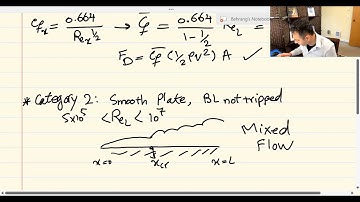 Cfx = 0.664 / Rex^1/2 → C̄f = 0.664 / 1-1/2 ReL =
FD = C̄f (1/2 ρV²) A ✓
* Category 2: Smooth Plate, BL not tripped
5x10⁵ < ReL < 10⁷
Mixed Flow
x=0 xcr x=L